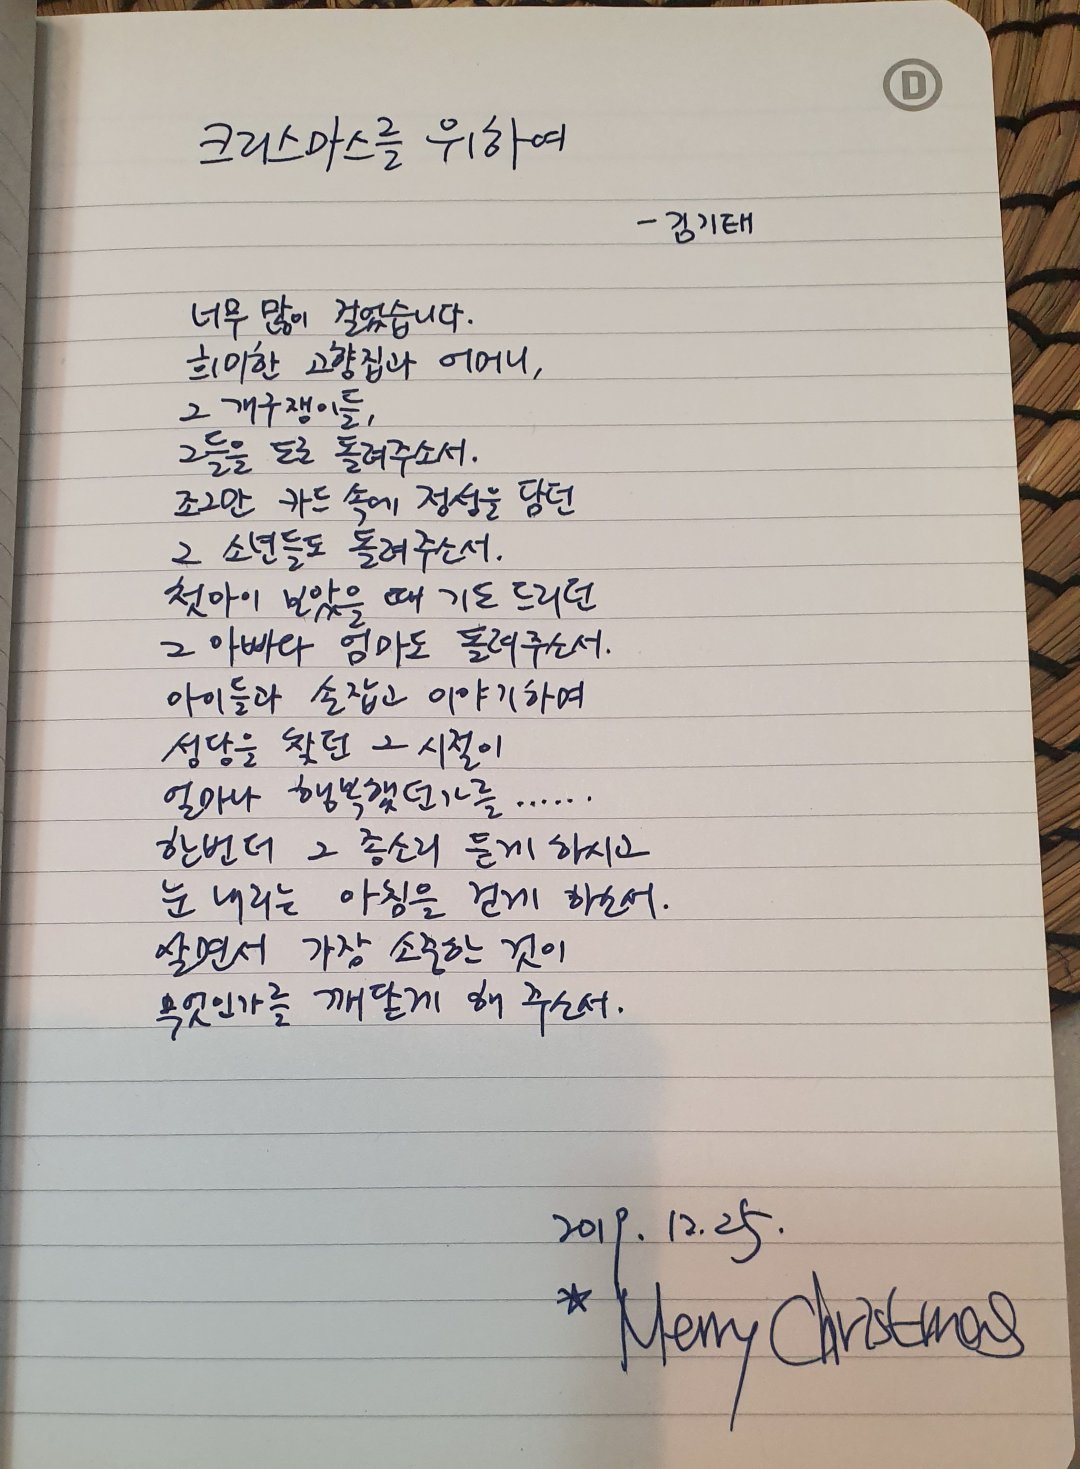 D
크리스마스를 위하여
- 김기태
너무 많이 걸었습니다.
희미한 고향집과 어머니,
그 개구쟁이들,
그들을 도로 돌려주소서.
조그만 카드 속에 정성을 담던
그 소년들도 돌려주소서.
첫아이 보았을 때 기도 드리던
그 아빠와 엄마도 돌려주소서.
아이들과 손잡고 이야기하며
성당을 찾던 그 시절이
얼마나 행복했던가를 ......
한번 더 그 종소리 듣게 하시고
눈 내리는 아침을 걷게 하소서.
살면서 가장 소중한 것이
무엇인가를 깨닫게 해 주소서.
2019. 12. 25.
* Merry Christmas